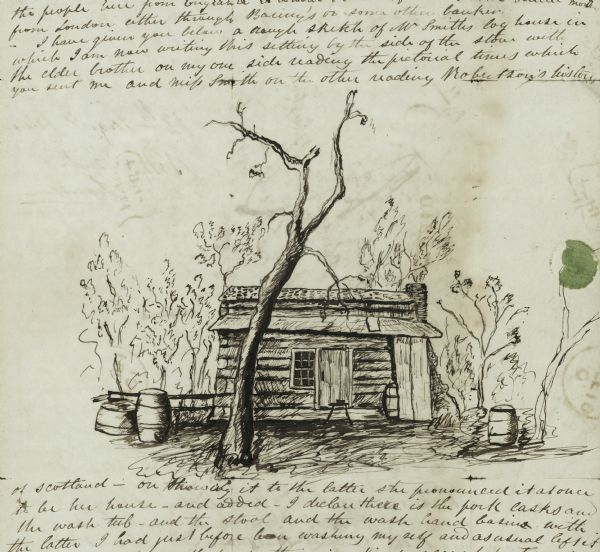 the people here from England is
from London either through Baring's or some other banker.
- I have given you below a rough sketch of Mr Smiths log house in
which I am now writing this setting by the side of the stove with
the elder brother on my one side reading the pictorial times which
you sent me and Miss Smith on the other reading Robertson's history
of scotland - on showing it to the latter she pronounced it at once
to be her house - and added - I declare there is the pork casks and
the wash tub - and the stool and the wash hand basin - with
the latter I had just before been washing my self and as usual left it